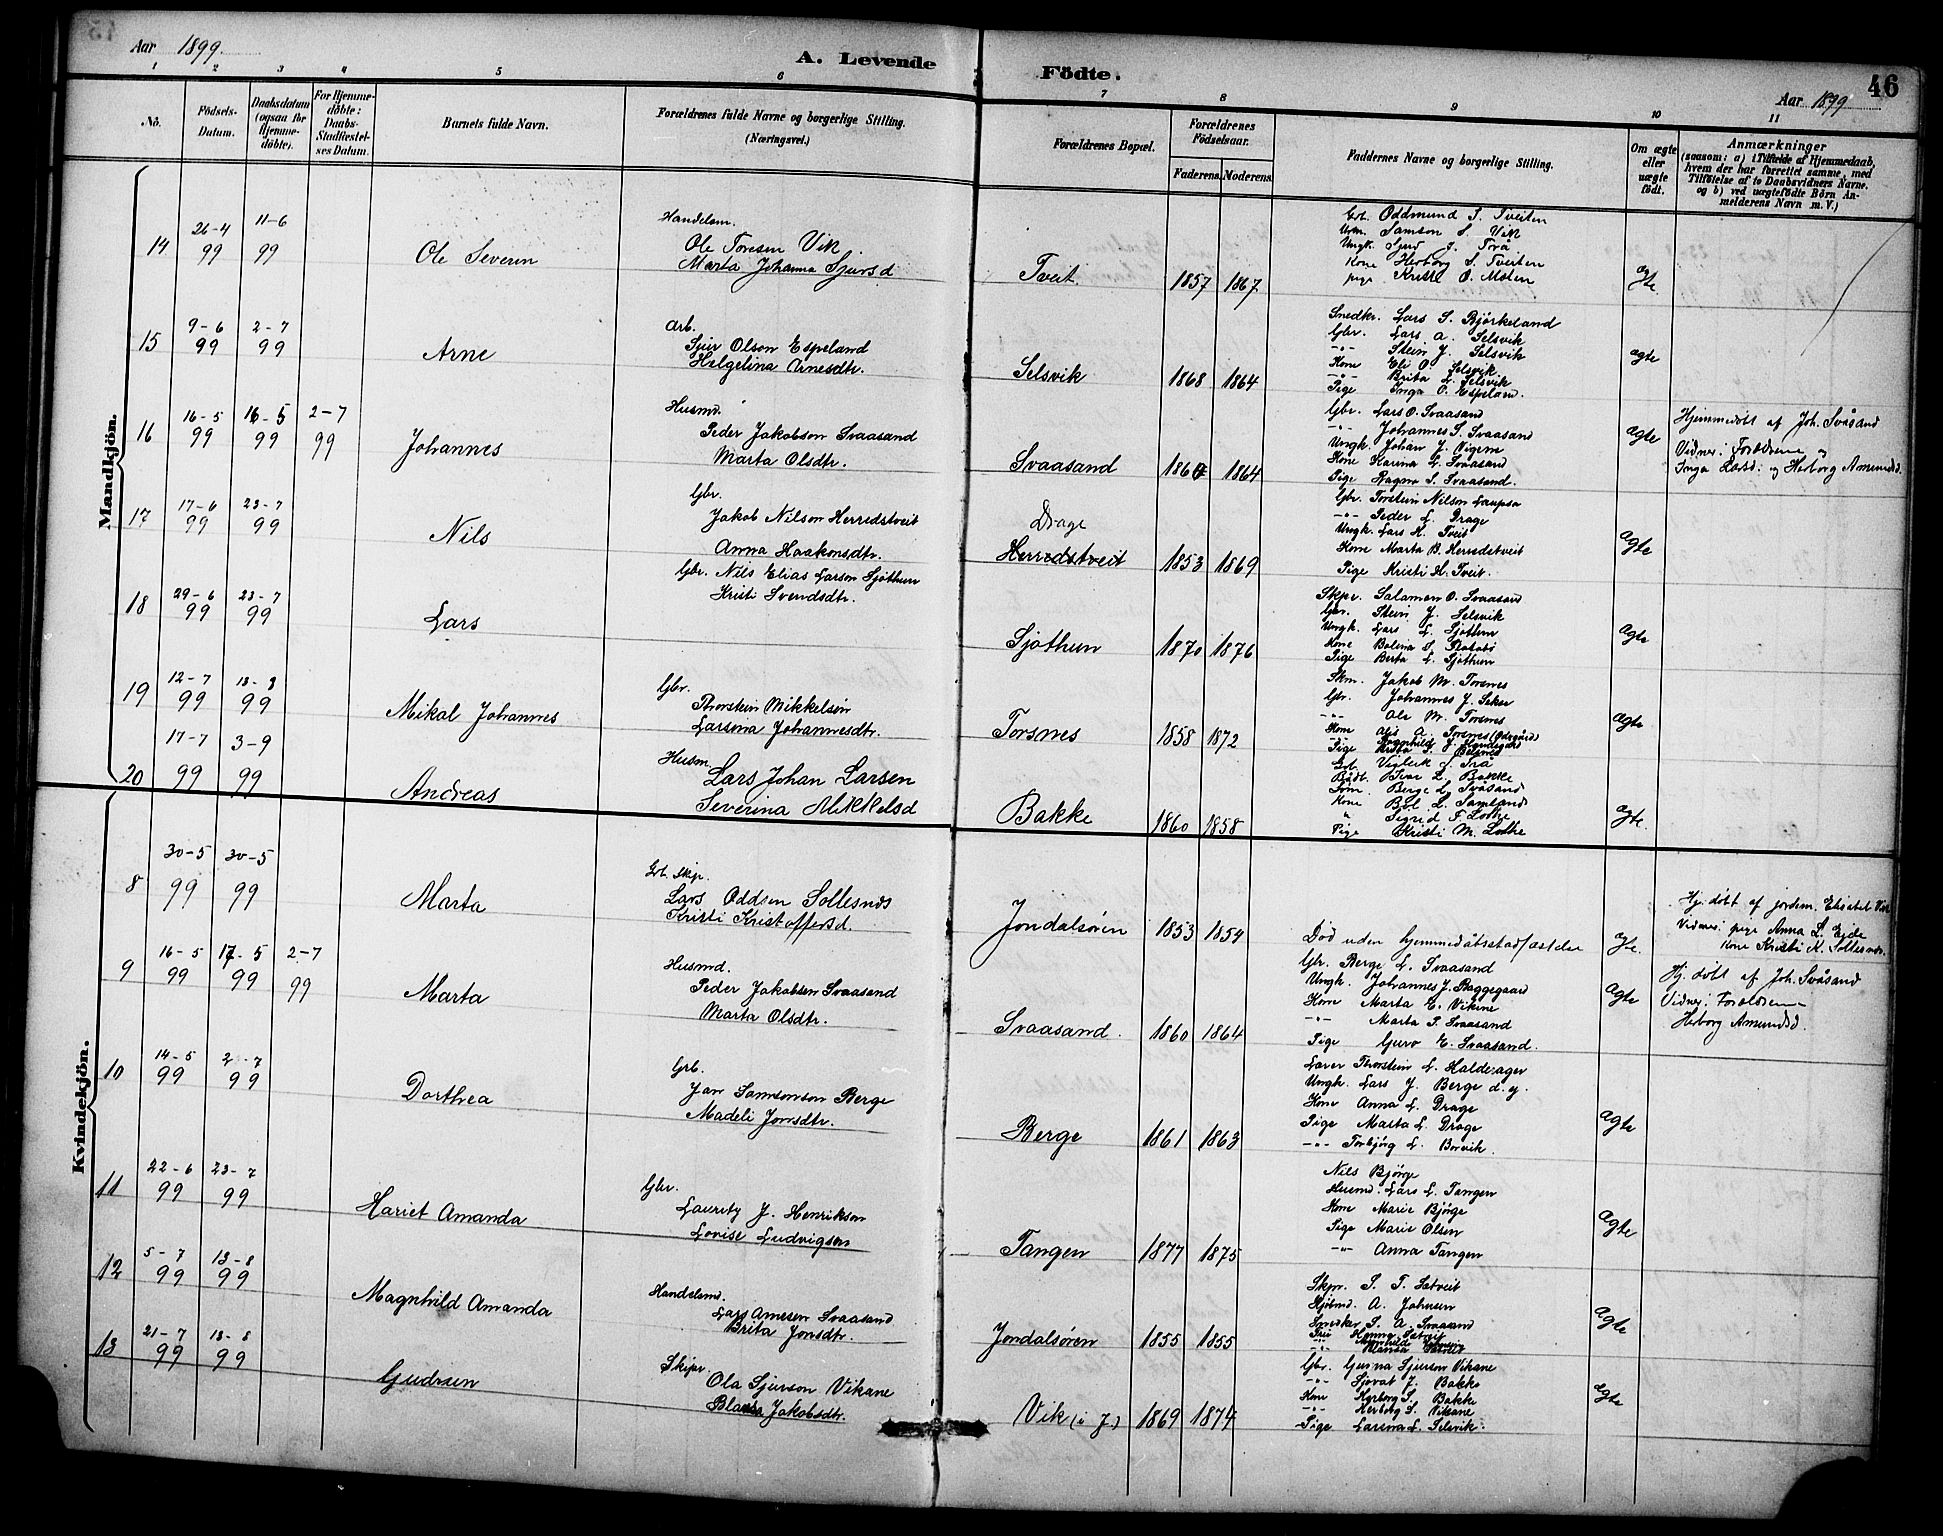 Aar 1899.
A. Levende Födte.
46
Aar 1899
1 2 3 4 5 6 7 8 9 10 11
No.
Födsels-Datum.
Daabsdatum (ogsaa for Hjemme-döbte).
For Hjemme-döbte: Daabs-Stadfæstel-ses Datum.
Barnets fulde Navn.
Forældrenes fulde Navne og borgerlige Stilling. (Næringsvei.)
Forældrenes Bopæl.
Forældrenes Födselsaar.
Faderens. Moderens.
Faddernes Navne og borgerlige Stilling.
Om ægte eller uægte födt.
Anmærkninger
(saasom: a) i Tilfælde af Hjemmedaab, hvem der har forrettet samme, med Tilföielse af to Daabsvidners Navne, og b) ved uægtefödte Börn An-melderens Navn m. V.)
Mandkjön.
14 26-4 99 11-6 99
Ole Severin
Handelsm.
Ole Toresen Vik
Marta Johanna Sjursd
Tveit. 1857 1867
Grb. Oddmund S. Tveiten
Urm. Samson S. Vik
Ungk. Sjur J. Trå
Kone Herborg S. Tveiten
pige Kristi O. Molen
ægte.
15 9-6 99 2-7 99
Arne
Arb.
Sjur Olson Espeland
Helgelina Arnesdtr.
Selsvik 1868 1864
Snedkr. Lars S. Björkeland
Gbr. Lars A. Selsvik
-"- Stein J. Selsvik
Kone Eli O. Selsvik
-"- Brita L. Selsvik
Pige Inga O. Espeland.
ægte
16 16-5 99 16-5 99 2-7 99
Johannes
Husmd.
Peder Jakobson Svaasand
Marta Olsdtr.
Svaasand 1860 1864
Gbr. Lars O. Svaasand
-"- Johannes S. Svaasand
Ungk. Johan J. Vigene
Kone Karina L. Svaasand
Pige Ragna S. Svaasand.
ægte
Hjemmedöbt af Joh. Svåsand
Vidner: Forældrene og
Inga Larsd. og Herborg Amundsd.
17 17-6 99 23-7 99
Nils
Gbr.
Jakob Nilson Herredstveit
Anna Haakonsdtr.
Drage
Herredstveit 1853 1869
Gbr. Torstein Nilson Laupsa
-"- Peder L. Drage
Ungk. Lars H. Tveit
Kone Marta B. Herredstveit
Pige Kristi H. Tveit.
ægte
18 29-6 99 23-7 99
Lars
Gbr. Nils Elias Larson Sjöthun
Kristi Svendsdtr.
Sjöthun 1870 1876
Skpr. Salamon O. Svaasand
Gbr. Stein J. Selsvik
Ungk. Lars L. Sjöthun
Kone Bolina S.
Pige Berta L. Sjöthun
ægte
19 12-7 99 13-8 99
Mikal Johannes
Gbr.
Thorstein Mikkelsen
Larsina Johannesdtr.
Torsnes 1858 1872
Skm. Jakob M. Torsnes
Gbr. Johannes J. Sekse
-"- Ole M. Torsnes
Kone A. Torsnes
Pige
ægte
20 17-7 99 3-9 99
Andreas
Husm.
Lars Johan Larsen
Severina Mikkelsd
Bakke 1860 1858
Grb. Vigleik J. Trå
Bådb. Iver L. Bakke
Berge L. Svåsand
Kone L. Samland
" Sigrid F. Lothe
Pige Kristi M. Lothe
ægte.
Kvindekjön.
8 30-5 99 30-5 99
Marta
Grb. Skp.
Lars Oddsen Sollesnes
Kristi Kristoffersd.
Jondalsören 1853 1854
Död uden hjemmedåbsstadfæstelse
ægte.
Hj. döbt af jordem. Elisabet Vik
Vidner: pige Anna L. Eide
Kone Kristi K. Sollesnes.
9 16-5 99 17-5 99 2-7 99
Marta
Husmd.
Peder Jakobsen Svaasand
Marta Olsdtr.
Svaasand. 1860 1864
Gbr. Berge L. Svaasand
Ungk. Johannes J. Baggegaard
Kone Marta E. Vikene
-"- Marta S. Svaasand
Pige Guro E. Svaasand.
ægte
Hj. döbt af Joh. Svåsand
Vidner: Forældrene
Herborg Amundsd.
10 14-5 99 2-7 99
Dorthea
Grb.
Jan Samsonson Berge
Madeli Jonsdtr.
Berge 1861 1863
Lærer Thorstein L. Haldesager
Ungk. Lars J. Berge d. y.
Kone Anna L. Drage
Pige Marta L. Drage
-"- Torbjörg L. Borvik.
ægte
11 22-6 99 23-7 99
Hariet Amanda
Gbr.
Lauritz J. Henrikson
Lovise Ludvigsen
Tangen 1877 1875
Nils Bjørge
Husmd. Lars L. Tangen
Kone Marie Bjørge
Pige Marie Olsen
-"- Anna Tangen
ægte
12 5-7 99 13-8 99
Magnhild Amanda
Handelsmd.
Lars Arnesen Svaasand
Brita Jonsdtr.
Jondalsören 1855 1855
Skpr. S. T. Sætveit
A. Johnsen
Snedker S. A. Svaasand
ægte
13 21-7 99 13-8 99
Gudrun
Skipr.
Ola Sjurson Vikane
Jakobsdtr.
Vik (i J.) 1869 1874
Gbr. Sjurson Vikane
-"- Sjovat J. Bakke
Kone Herborg S. Bakke
-"- Herborg S. Vikane
Pige Larsina L. Selsvik.
ægte